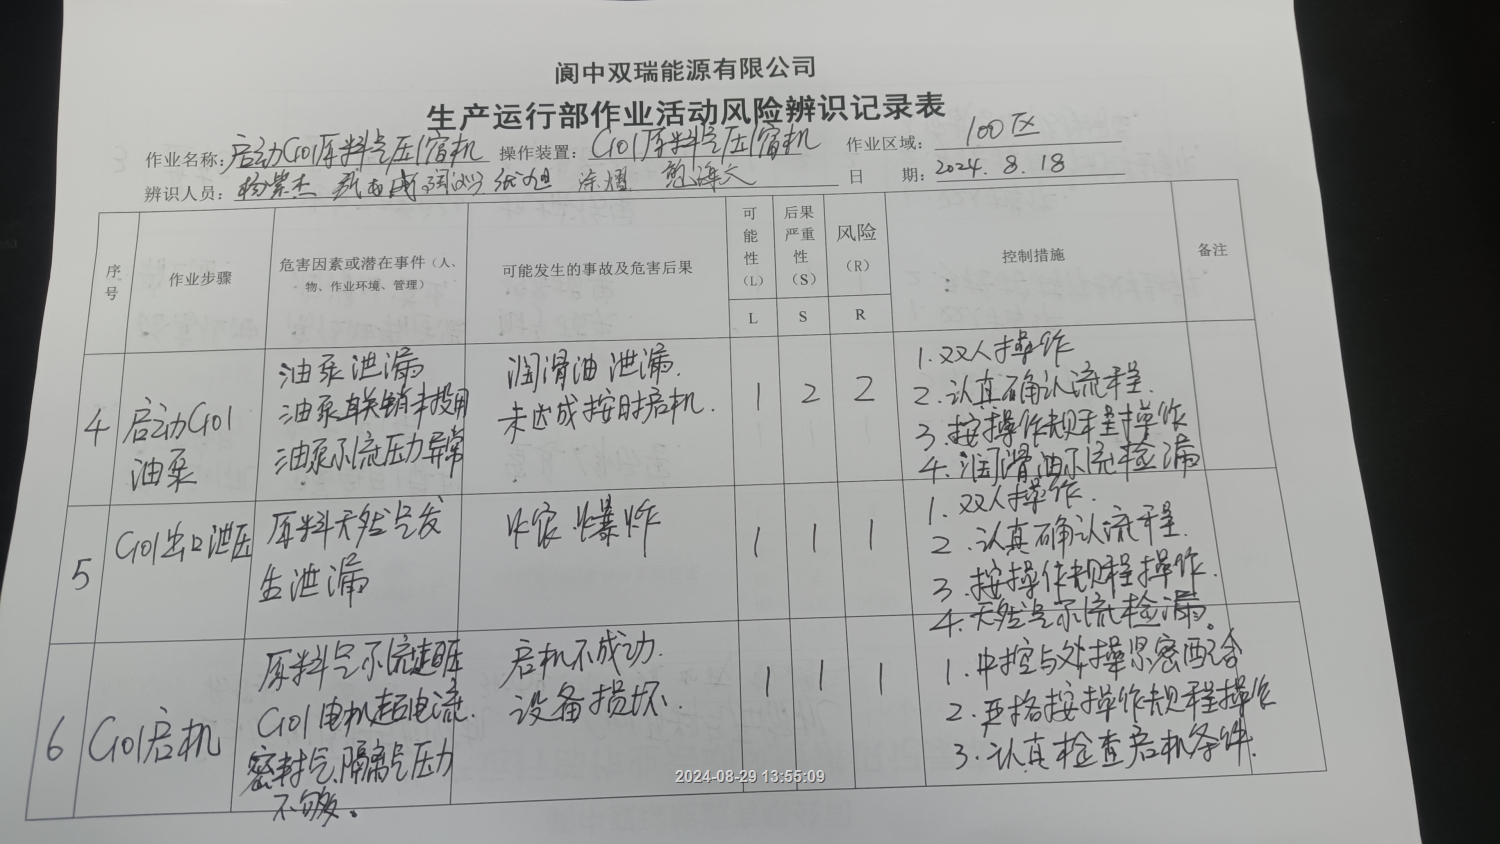 阆中双瑞能源有限公司
生产运行部作业活动风险辨识记录表
作业名称：启动C101原料气压缩机 操作装置：C101原料气压缩机 作业区域：100区
辨识人员： 涂熠 日 期：2024.8.18
序号 作业步骤 危害因素或潜在事件（人、物、作业环境、管理） 可能发生的事故及危害后果 可能性（L） 后果严重性（S） 风险（R） 控制措施 备注
L S R
4 启动C101油泵
油泵泄漏
油泵联锁未投用
油泵系统压力异常
润滑油泄漏.
未达成按时启机.
1 2 2
1.双人操作
2.认真确认流程.
3.按操作规程操作
4.润滑油系统检漏
5 C101出口泄压
原料天然气发
生泄漏
火灾.爆炸
1 1 1
1.双人操作.
2.认真确认流程.
3.按操作规程操作.
4.天然气系统检漏。
6 C101启机
原料气系统超压
C101电机超电流.
密封气.隔离气压力
不够。
启机不成功.
设备损坏.
1 1 1
1.中控与外操紧密配合
2.严格按操作规程操作
3.认真检查启机条件.
2024-08-29 13:55:09